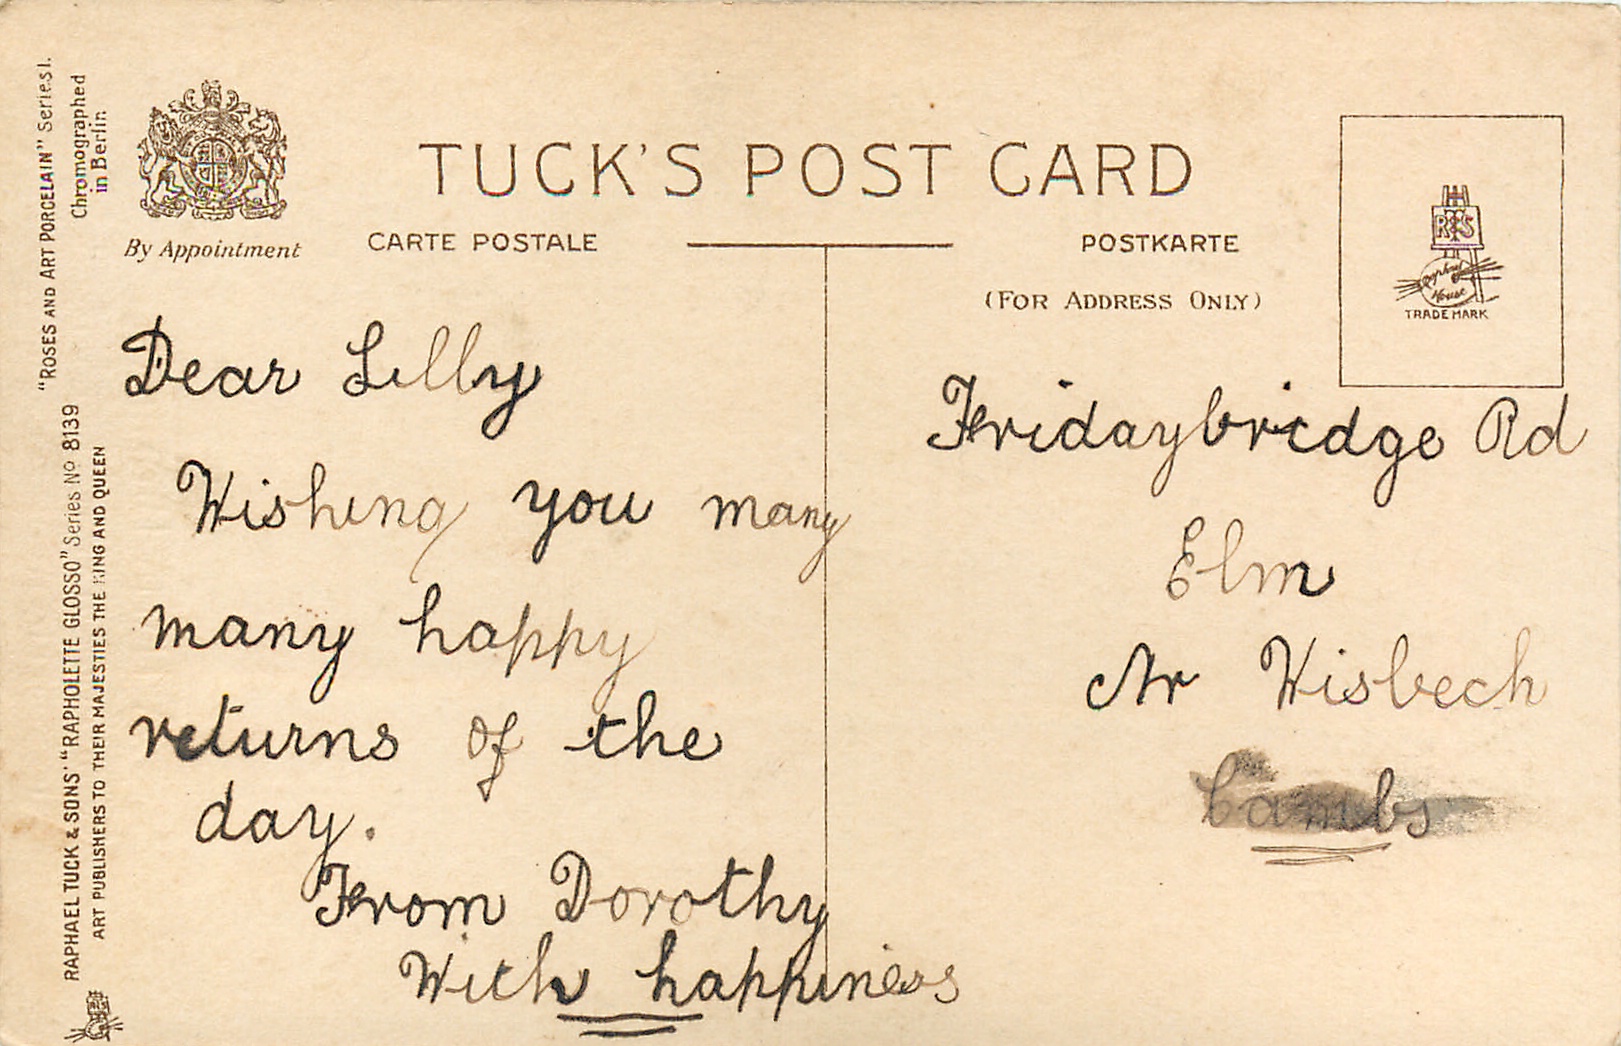 TUCK'S POST CARD
CARTE POSTALE
POSTKARTE
(FOR ADDRESS ONLY)
By Appointment
R T S
Raphael House
TRADE MARK
"ROSES AND ART PORCELAIN" Series I.
Chromographed
in Berlin
RAPHAEL TUCK & SONS' "RAPHOLETTE GLOSSO" Series No 8139
ART PUBLISHERS TO THEIR MAJESTIES THE KING AND QUEEN
Dear Lilly
Wishing you many
many happy
returns of the
day.
From Dorothy
With happiness
Fridaybridge Rd
Elm
Nr Wisbech
Cambs